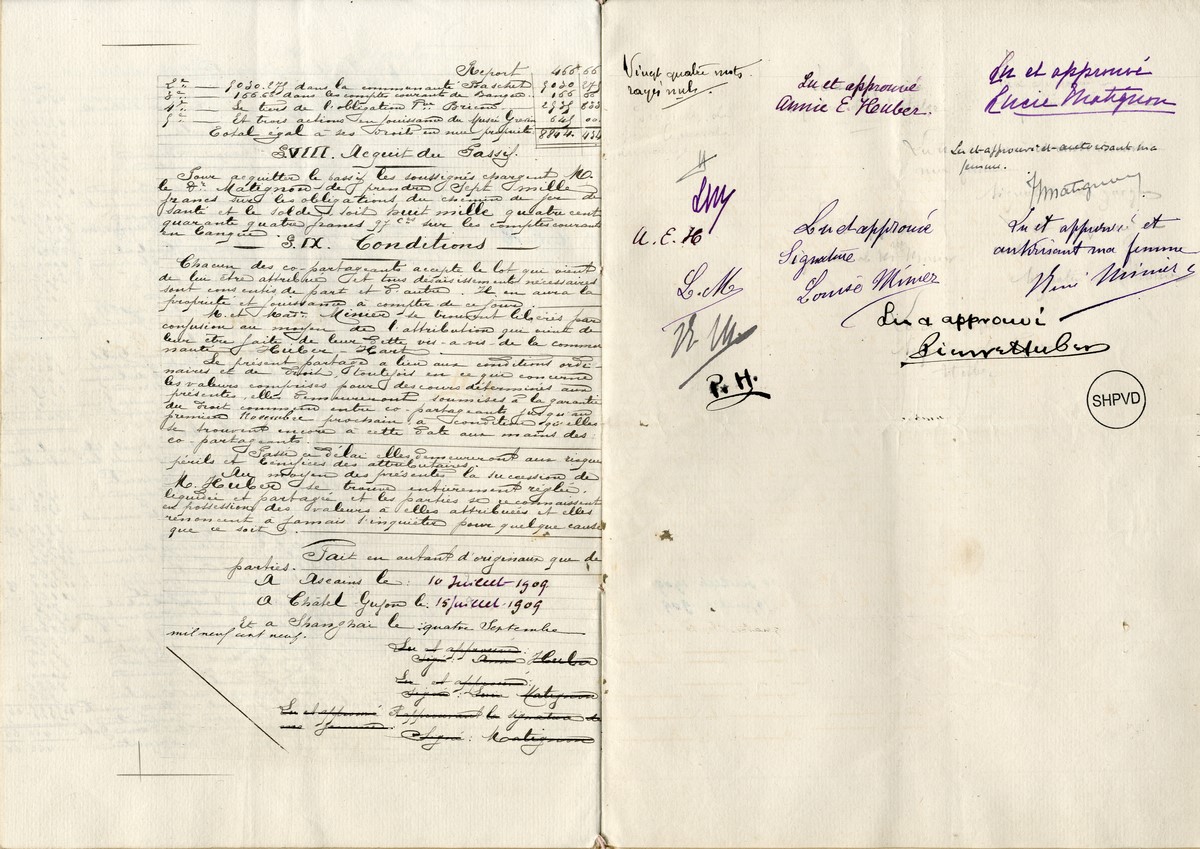 Report 466 66
2º — 9030.275 dans la communauté 9030 275
3º — 166.66 dans les comptes courants de Banque 166 66
4º — Le tiers de l'obligation Brienne 
5º — Et trois actions en jouissance du Musée Grevin 645 00
Total égal à ses droits en nue propriété 
§.VIII. Acquit du Passif.
Pour acquitter le passif, les soussignés chargent M.
le Dr. Matignon de prendre Sept mille
francs sur les obligations du chemin de fer de
santé et le solde soit huit mille quatre cent
quarante quatre francs sur les comptes courants
en banque
— §.IX. Conditions —
Chacun des co-partageants accepte le lot qui vient
de lui être attribué et tous dessaisissements nécessaires
sont consentis de part et d'autre. Il en aura la
propriété et jouissance à compter de ce jour.
M. et Mme. Minier se trouvent libérés par
confusion au moyen de l'attribution qui vient de
leur être faite, de leur dette vis-à-vis de la commu
nauté Huber-Hart.
Le présent partage a lieu aux conditions ordi-
naires et de droit, toutefois en ce que concerne
les valeurs comprises pour des cours déterminés aux
présentes, elles demeureront soumises à la garantie
du droit commun entre co-partageants jusqu'au
premier Novembre prochain à condition qu'elles
se trouvent encore à cette date aux mains des
co-partageants.
Passé ce délai elles demeureront aux risques
périls et bénéfices des attributaires.
Au moyen des présentes la succession de
M. Huber se trouve entièrement réglée,
liquidée et partagée et les parties se reconnaissent
en possession des valeurs à elles attribuées et elles
renoncent à jamais s'inquiéter pour quelque cause
que ce soit.
Fait en autant d'originaux que de
parties.
A Ascains le: 10 Juillet 1909
A Châtel Guyon le: 15 juillet 1909
Et à Shanghaï le quatre Septembre
mil neuf cent neuf.
Lu et approuvé:
Signé: Annie Huber
Lu et approuvé:
Signé: Lucie Matignon
Lu et approuvé Approuvant la signature de
ma femme:
Signé: Matignon
Vingt quatre mots
rayés nuls.
Lu et approuvé
Annie E. Huber.
Lu et approuvé
Lucie Matignon
Lu et approuvé et autorisant ma
femme.
JMatignon
LM
A. E. H
Lu et approuvé
Signature
Louise Minier
Lu et approuvé et
autorisant ma femme
René Minier
L. M
R M
Lu et approuvé
Pierre Huber
P. H.
SHPVD